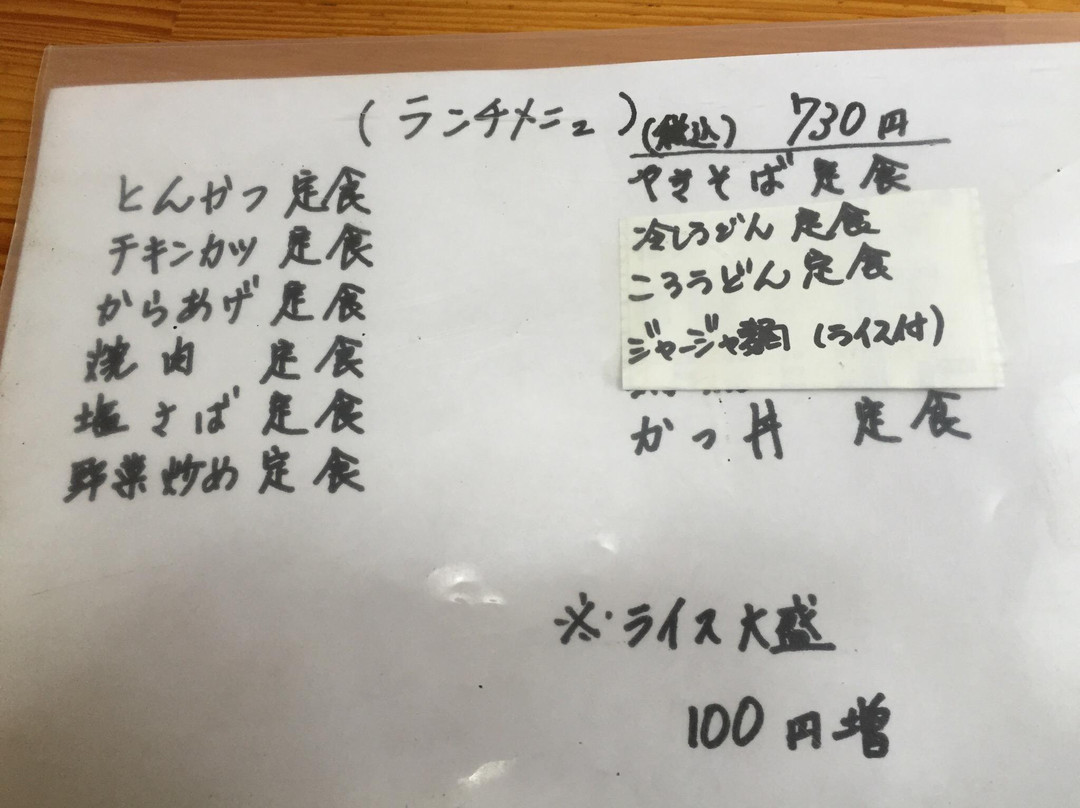 (ランチメニュ)(税込) 730円
とんかつ定食
チキンカツ定食
からあげ定食
焼肉 定食
塩さば定食
野菜炒め定食
やきそば定食
冷しうどん定食
ころうどん定食
ジャージャ麺(ライス付)
かつ丼 定食
※・ライス大盛
100円増